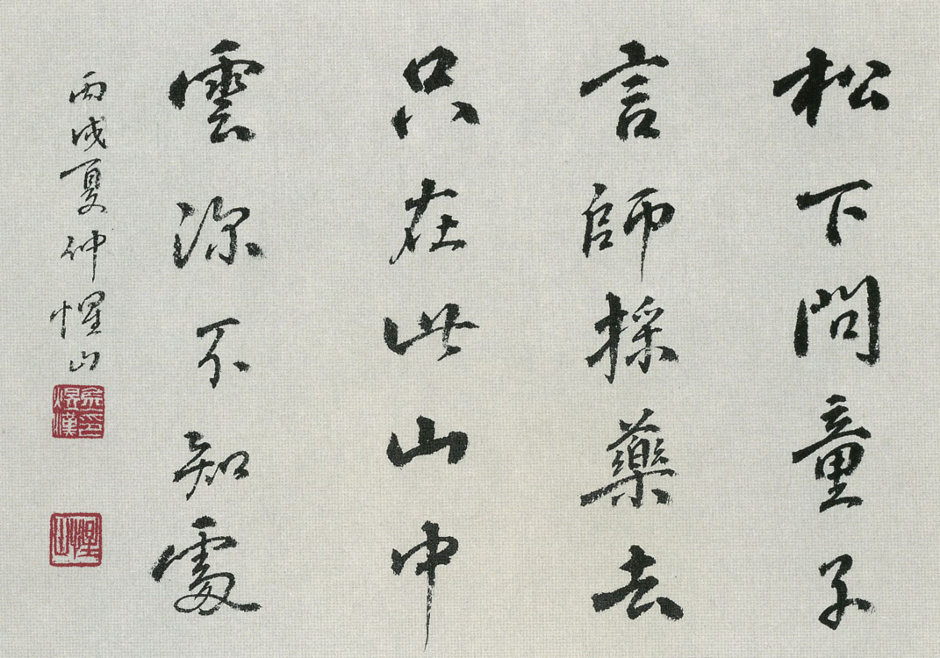 松下問童子
言師採藥去
只在此山中
雲深不知處
丙戌夏仲惺山